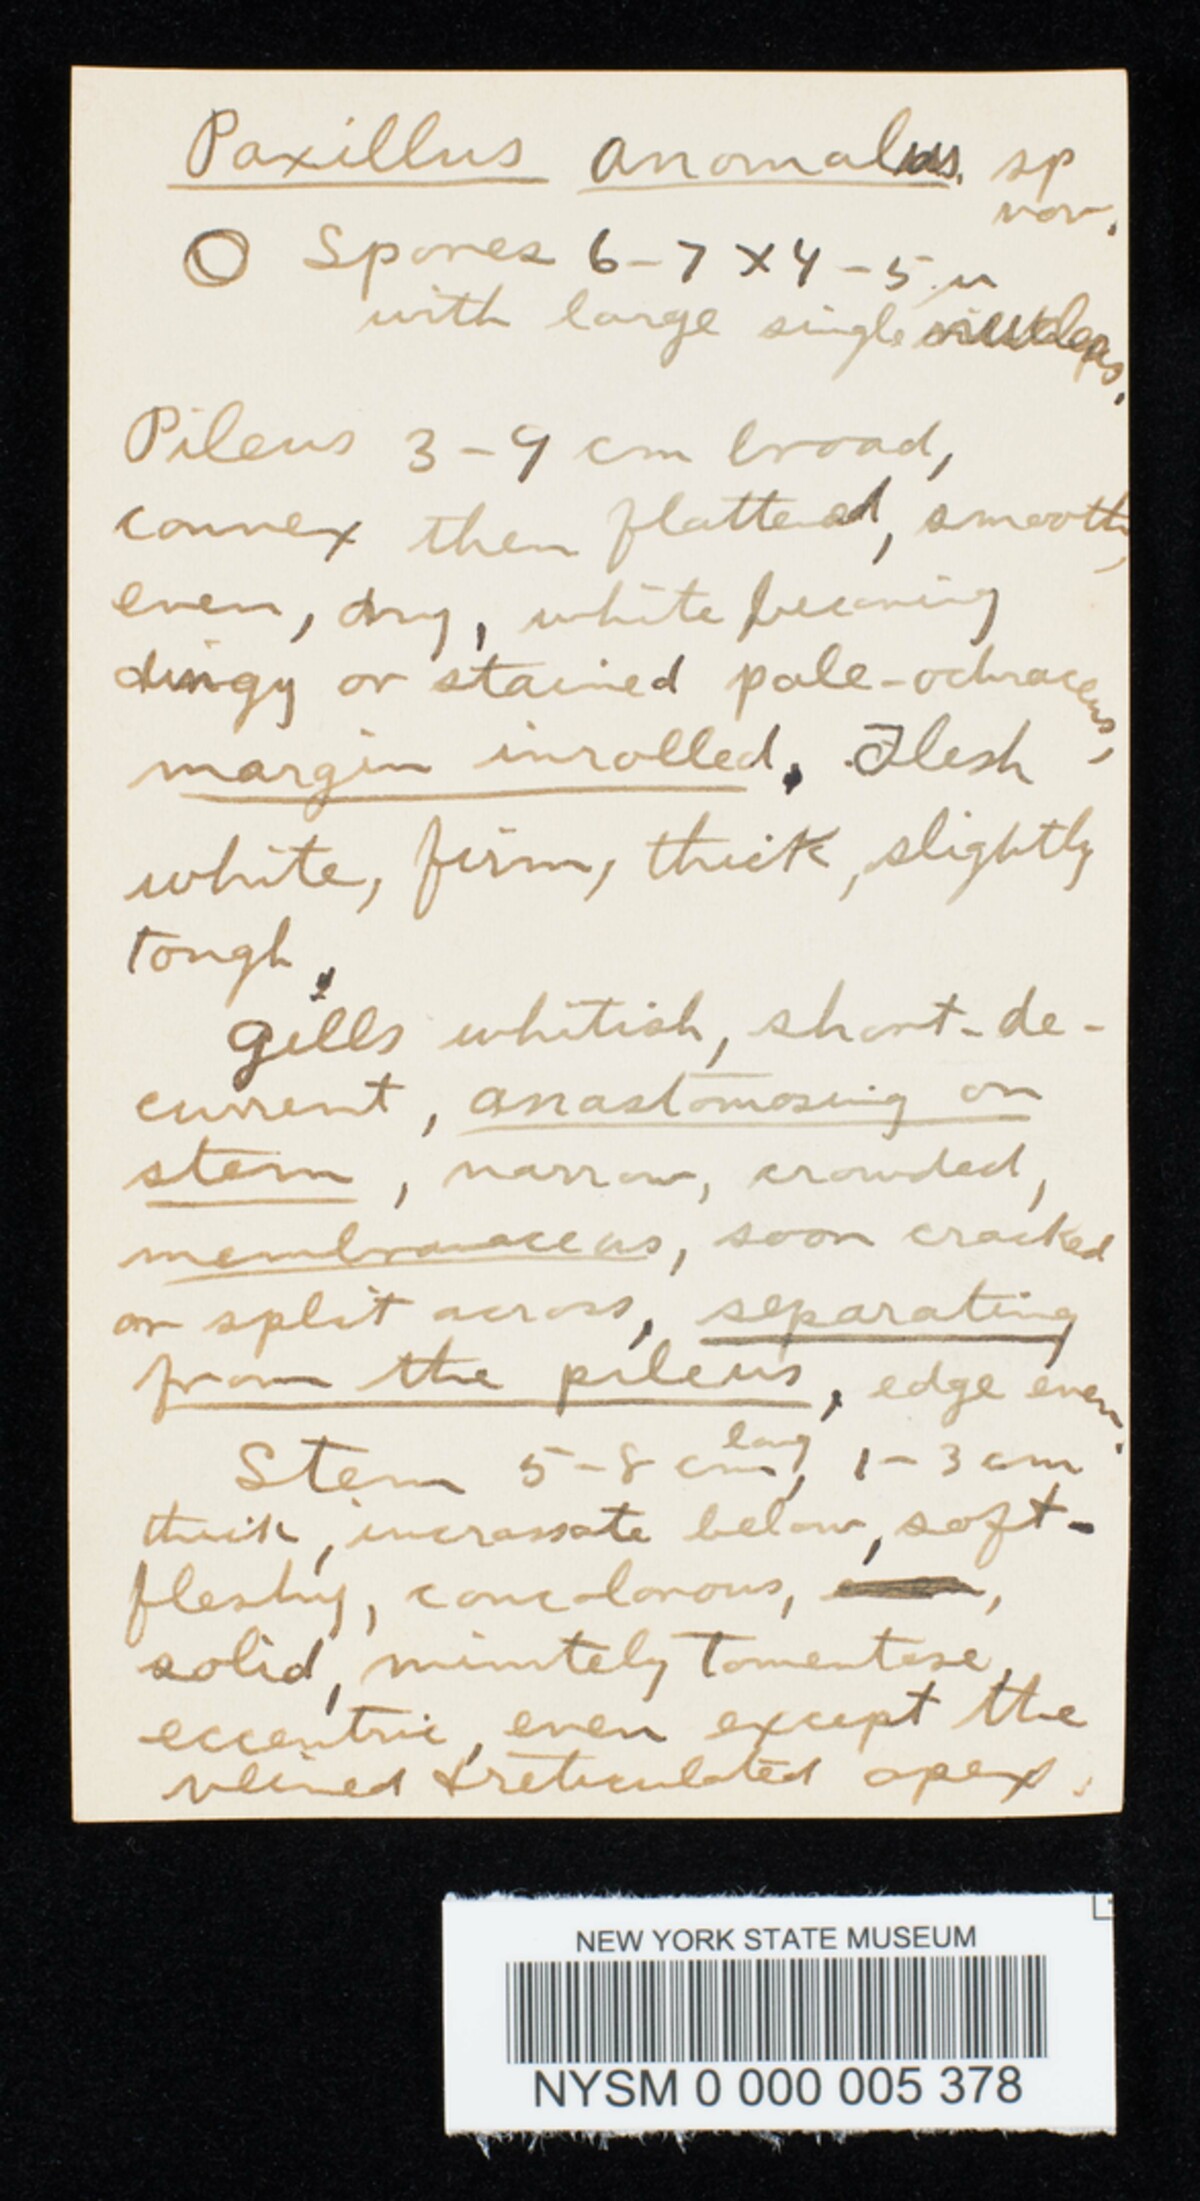 Paxillus anomalus. sp
nov.
O Spores 6-7 x 4-5 u
with large single
Pileus 3-9 cm broad,
convex then flattened, smooth,
even, dry, white becoming
dingy or stained pale-ochraceous,
margin inrolled. Flesh
white, firm, thick, slightly
tough.
Gills whitish, short-de-
current, anastomosing on
stem, narrow, crowded,
membranaceous, soon cracked
or split across, separating
from the pileus, edge even.
Stem 5-8 cm long, 1-3 cm
thick, incrassate below, soft-
fleshy, concolorous, ,
solid, minutely tomentose,
eccentric, even except the
veined & reticulated apex.
NEW YORK STATE MUSEUM
NYSM 0 000 005 378